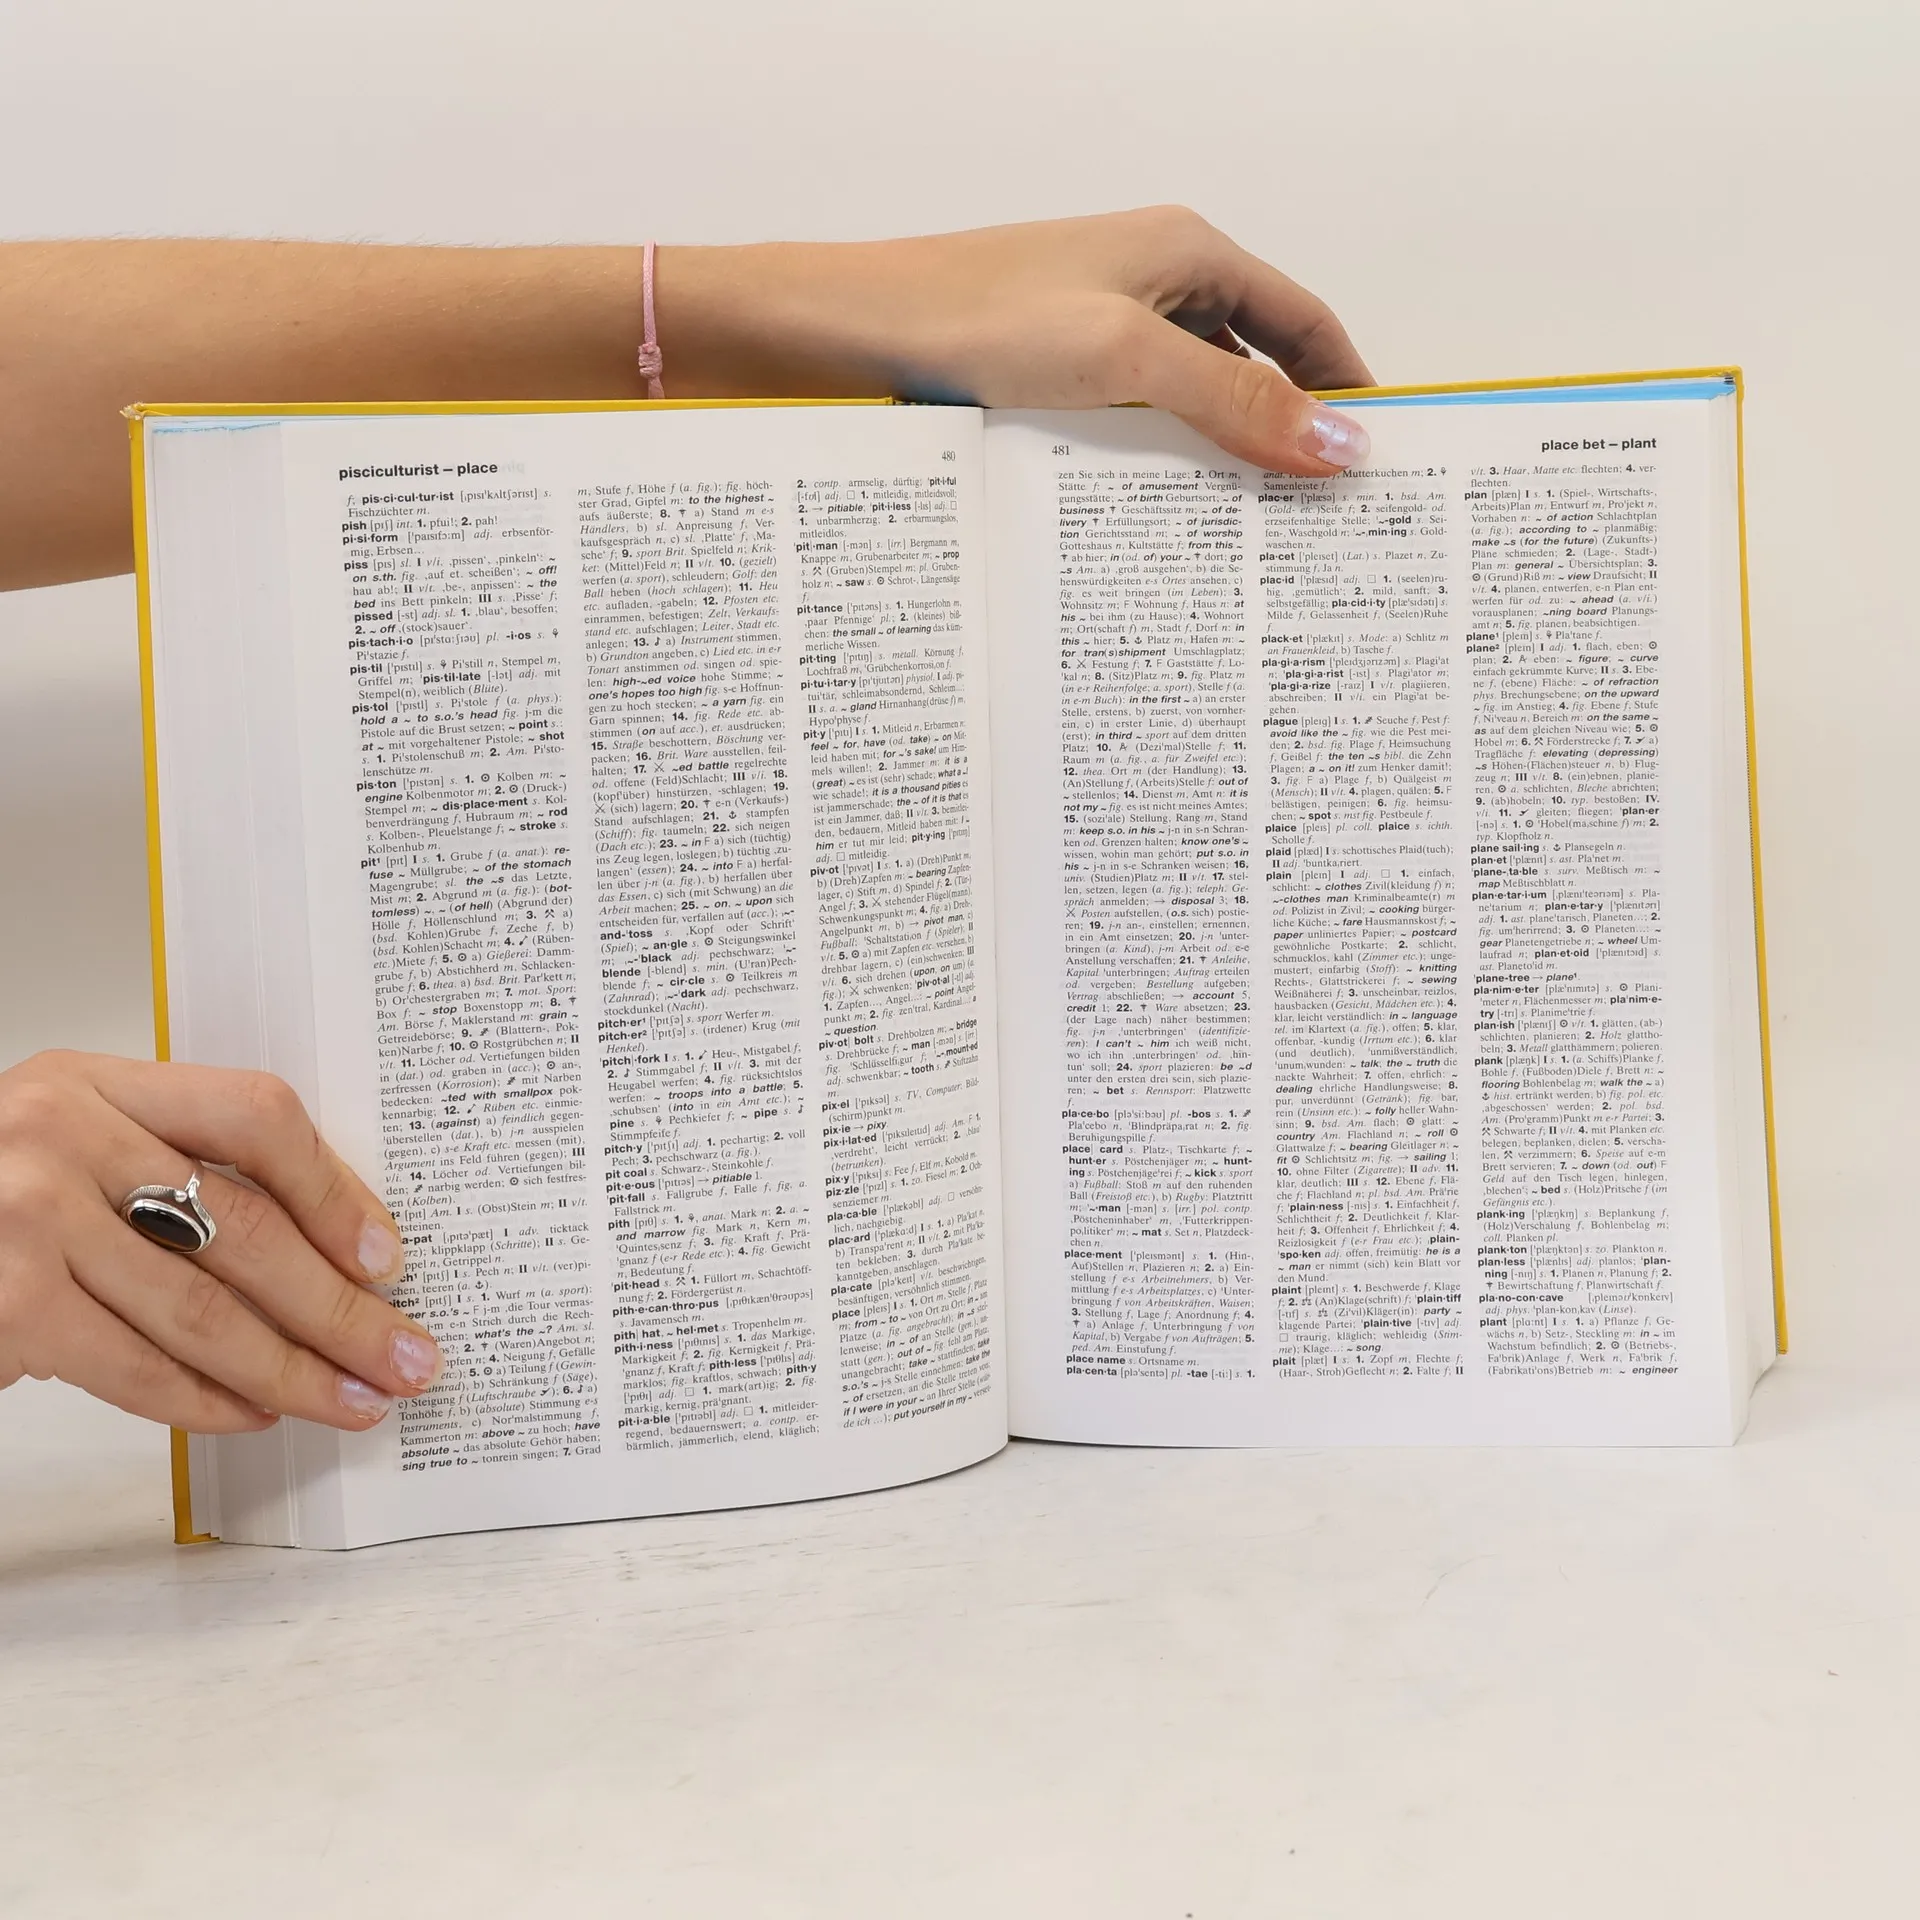 pisciculturist – place
480
f; pis·ci·cul·tur·ist [ˌpɪsɪˈkʌltʃərɪst] s.
Fischzüchter m.
pish [pɪʃ] int. 1. pfui!; 2. pah!
pi·si·form [ˈpaɪsɪfɔːm] adj. erbsenför-
mig, Erbsen…
piss [pɪs] sl. I v/i. ‚pissen‘, ‚pinkeln‘: ~
on s.th. fig. ‚auf et. scheißen‘; ~ off!
hau ab!; II v/t. ‚be-, anpissen‘: ~ the
bed ins Bett pinkeln; III s. ‚Pisse‘ f;
pissed [-st] adj. sl. 1. ‚blau‘, besoffen;
2. ~ off ‚(stock)sauer‘.
pis·tach·i·o [pɪˈstɑːʃɪəʊ] pl. -i·os s. ⚘
Piˈstazie f.
pis·til [ˈpɪstɪl] s. ⚘ Piˈstill n, Stempel m,
Griffel m; ˈpis·til·late [-lət] adj. mit
Stempel(n), weiblich (Blüte).
pis·tol [ˈpɪstl] s. Piˈstole f (a. phys.):
hold a ~ to s.o.'s head fig. j-m die
Pistole auf die Brust setzen; ~ point s.:
at ~ mit vorgehaltener Pistole; ~ shot
s. 1. Piˈstolenschuß m; 2. Am. Piˈsto-
lenschütze m.
pis·ton [ˈpɪstən] s. 1. ⊙ Kolben m: ~
engine Kolbenmotor m; 2. ⊙ (Druck-)
Stempel m; ~ dis·place·ment s. Kol-
benverdrängung f, Hubraum m; ~ rod
s. Kolben-, Pleuelstange f; ~ stroke s.
Kolbenhub m.
pit¹ [pɪt] I s. 1. Grube f (a. anat.): re-
fuse ~ Müllgrube; ~ of the stomach
Magengrube; sl. the ~s das Letzte,
Mist m; 2. Abgrund m (a. fig.): (bot-
tomless) ~, ~ (of hell) (Abgrund der)
Hölle f, Höllenschlund m; 3. ⚒ a)
(bsd. Kohlen)Grube f, Zeche f, b)
(bsd. Kohlen)Schacht m; 4. (Rüben-
etc.)Miete f; 5. ⊙ a) Gießerei: Damm-
grube f, b) Abstichherd m, Schlacken-
grube f; 6. thea. a) bsd. Brit. Parˈkett n,
b) Orˈchestergraben m; 7. mot. Sport:
Box f; ~ stop Boxenstopp m; 8. ✝
Am. Börse f, Maklerstand m: grain ~
Getreidebörse; 9. (Blattern-, Pok-
ken)Narbe f; 10. ⊙ Rostgrübchen n; II
v/t. 11. Löcher od. Vertiefungen bilden
in (dat.) od. graben in (acc.); ⊙ an-,
zerfressen (Korrosion); mit Narben
bedecken: ~ted with smallpox pok-
kennarbig; 12. Rüben etc. einmie-
ten; 13. (against) a) feindlich gegen-
ˈüberstellen (dat.), b) j-n ausspielen
(gegen), c) s-e Kraft etc. messen (mit),
Argument ins Feld führen (gegen); III
v/i. 14. Löcher od. Vertiefungen bil-
den; narbig werden; ⊙ sich festfres-
sen (Kolben).
[pɪt] Am. I s. (Obst)Stein m; II v/t.
ntsteinen.
a-pat [ˌpɪtəˈpæt] I adv. ticktack
erz); klippklapp (Schritte); II s. Ge-
ppel n, Getrippel n.
ch¹ [pɪtʃ] I s. Pech n; II v/t. (ver)pi-
chen, teeren (a. ⚓).
itch² [pɪtʃ] I s. 1. Wurf m (a. sport):
~ F j-m ‚die Tour vermas-
j-m e-n Strich durch die Rech-
achen; what's the ~? Am. sl.
os?; 2. ✝ (Waren)Angebot n;
pfen n; 4. Neigung f, Gefälle
etc.); 5. ⊙ a) Teilung f (Gewin-
ahnrad), b) Schränkung f (Säge),
c) Steigung f (Luftschraube); 6. ♪ a)
Tonhöhe f, b) (absolute) Stimmung e-s
Instruments, c) Norˈmalstimmung f,
Kammerton m: above ~ zu hoch; have
absolute ~ das absolute Gehör haben;
sing true to ~ tonrein singen; 7. Grad
m, Stufe f, Höhe f (a. fig.); fig. höch-
ster Grad, Gipfel m: to the highest ~
aufs äußerste; 8. ✝ a) Stand m e-s
Händlers, b) sl. Anpreisung f, Ver-
kaufsgespräch n, c) sl. ‚Platte‘ f, ‚Ma-
sche‘ f; 9. sport Brit. Spielfeld n; Krik-
ket: (Mittel)Feld n; II v/t. 10. (gezielt)
werfen (a. sport), schleudern; Golf: den
Ball heben (hoch schlagen); 11. Heu
etc. aufladen, -gabeln; 12. Pfosten etc.
einrammen, befestigen; Zelt, Verkaufs-
stand etc. aufschlagen; Leiter, Stadt etc.
anlegen; 13. ♪ a) Instrument stimmen,
b) Grundton angeben, c) Lied etc. in e-r
Tonart anstimmen od. singen od. spie-
len: high-~ed voice hohe Stimme; ~
one's hopes too high fig. s-e Hoffnun-
gen zu hoch stecken; ~ a yarn fig. ein
Garn spinnen; 14. fig. Rede etc. ab-
stimmen (on auf acc.), et. ausdrücken;
15. Straße beschottern, Böschung ver-
packen; 16. Brit. Ware ausstellen, feil-
halten; 17. ⚔ ~ed battle regelrechte
od. offene (Feld)Schlacht; III v/i. 18.
(kopfˈüber) hinstürzen, -schlagen; 19.
⚔ (sich) lagern; 20. ✝ e-n (Verkaufs-)
Stand aufschlagen; 21. ⚓ stampfen
(Schiff); fig. taumeln; 22. sich neigen
(Dach etc.); 23. ~ in F a) sich (tüchtig)
ins Zeug legen, loslegen, b) tüchtig ‚zu-
langen‘ (essen); 24. ~ into F a) herfal-
len über j-n (a. fig.), b) herfallen über
das Essen, c) sich (mit Schwung) an die
Arbeit machen; 25. ~ on, ~ upon sich
entscheiden für, verfallen auf (acc.); ˌ~-
and-ˈtoss s. ‚Kopf oder Schrift‘
(Spiel); ~ an·gle s. ⊙ Steigungswinkel
m; ˌ~-ˈblack adj. pechschwarz; ˈ~-
blende [-blend] s. min. (Uˈran)Pech-
blende f; ~ cir·cle s. ⊙ Teilkreis m
(Zahnrad); ˌ~-ˈdark adj. pechschwarz,
stockdunkel (Nacht).
pitch·er¹ [ˈpɪtʃə] s. sport Werfer m.
pitch·er² [ˈpɪtʃə] s. (irdener) Krug (mit
Henkel).
ˈpitch|·fork I s. 1. Heu-, Mistgabel f;
2. ♪ Stimmgabel f; II v/t. 3. mit der
Heugabel werfen; 4. fig. rücksichtslos
werfen: ~ troops into a battle; 5.
‚schubsen‘ (into in ein Amt etc.); ~
pine s. ⚘ Pechkiefer f; ~ pipe s. ♪
Stimmpfeife f.
pitch·y [ˈpɪtʃɪ] adj. 1. pechartig; 2. voll
Pech; 3. pechschwarz (a. fig.).
pit coal s. Schwarz-, Steinkohle f.
pit·e·ous [ˈpɪtɪəs] → pitiable 1.
ˈpit·fall s. Fallgrube f, Falle f, fig. a.
Fallstrick m.
pith [pɪθ] s. 1. ⚘, anat. Mark n; 2. a. ~
and marrow fig. Mark n, Kern m,
ˈQuintesˌsenz f; 3. fig. Kraft f, Prä-
ˈgnanz f (e-r Rede etc.); 4. fig. Gewicht
n, Bedeutung f.
ˈpit·head s. ⚒ 1. Füllort m, Schachtöff-
nung f; 2. Fördergerüst n.
pith·e·can·thro·pus [ˌpɪθɪkænˈθrəʊpəs]
s. Javamensch m.
pith| hat, ~ hel·met s. Tropenhelm m.
pith·i·ness [ˈpɪθɪnɪs] s. 1. das Markige,
Markigkeit f; 2. fig. Kernigkeit f, Prä-
ˈgnanz f, Kraft f; pith·less [ˈpɪθlɪs] adj.
marklos; fig. kraftlos, schwach; pith·y
[ˈpɪθɪ] adj. □ 1. mark(art)ig; 2. fig.
markig, kernig, präˈgnant.
pit·i·a·ble [ˈpɪtɪəbl] adj. □ 1. mitleider-
regend, bedauernswert; a. contp. er-
bärmlich, jämmerlich, elend, kläglich;
2. contp. armselig, dürftig; ˈpit·i·ful
[-fʊl] adj. □ 1. mitleidig, mitleidsvoll;
2. → pitiable; ˈpit·i·less [-lɪs] adj. □
1. unbarmherzig; 2. erbarmungslos,
mitleidlos.
ˈpit·man [-mən] s. [irr.] Bergmann m,
Knappe m, Grubenarbeiter m; ~ prop
s. ⚒ (Gruben)Stempel m; pl. Gruben-
holz n; ~ saw s. ⊙ Schrot-, Längensäge
f.
pit·tance [ˈpɪtəns] s. 1. Hungerlohn m,
‚paar Pfennige‘ pl.; 2. (kleines) biß-
chen: the small ~ of learning das küm-
merliche Wissen.
pit·ting [ˈpɪtɪŋ] s. metall. Körnung f,
Lochfraß m, ˈGrübchenkorrosiˌon f.
pi·tu·i·tar·y [pɪˈtjuɪtərɪ] physiol. I adj. pi-
tuiˈtär, schleimabsondernd, Schleim…;
II s. a. ~ gland Hirnanhang(drüse f) m,
Hypoˈphyse f.
pit·y [ˈpɪtɪ] I s. 1. Mitleid n, Erbarmen n:
feel ~ for, have (od. take) ~ on Mit-
leid haben mit; for ~'s sake! um Him-
mels willen!; 2. Jammer m: it is a
(great) ~ es ist (sehr) schade; what a ~!
wie schade!; it is a thousand pities es
ist jammerschade; the ~ of it is that es
ist ein Jammer, daß; II v/t. 3. bemitlei-
den, bedauern, Mitleid haben mit: I ~
him er tut mir leid; pit·y·ing [ˈpɪtɪɪŋ]
adj. □ mitleidig.
piv·ot [ˈpɪvət] I s. 1. a) (Dreh)Punkt m,
b) (Dreh)Zapfen m: ~ bearing Zapfen-
lager, c) Stift m, d) Spindel f; 2. (Tür-)
Angel f; 3. ⚔ stehender Flügel(mann),
Schwenkungspunkt m; 4. fig. a) Dreh-,
Angelpunkt m, b) → pivot man, c)
Fußball: ˈSchaltstation f (Spieler); II
v/t. 5. ⊙ a) mit Zapfen etc. versehen, b)
drehbar lagern, c) (ein)schwenken; III
v/i. 6. sich drehen (upon, on um) (a.
fig.); ⚔ schwenken; ˈpiv·ot·al [-tl] adj.
1. Zapfen…, Angel…: ~ point Angel-
punkt m; 2. fig. zenˈtral, Kardinal…: a
~ question.
piv·ot| bolt s. Drehbolzen m; ~ bridge
s. Drehbrücke f; ~ man [-mən] s. [irr.]
fig. ˈSchlüsselfigur f; ˈ~-mount·ed
adj. schwenkbar; ~ tooth s. Stiftzahn
m.
pix·el [ˈpɪksəl] s. TV, Computer: Bild-
(schirm)punkt m.
pix·ie → pixy.
pix·i·lat·ed [ˈpɪksɪleɪtɪd] adj. Am. F 1.
‚verdreht‘, leicht verrückt; 2. ‚blau‘
(betrunken).
pix·y [ˈpɪksɪ] s. Fee f, Elf m, Kobold m.
piz·zle [ˈpɪzl] s. 1. zo. Fiesel m; 2. Och-
senziemer m.
pla·ca·ble [ˈplækəbl] adj. □ versöhn-
lich, nachgiebig.
plac·ard [ˈplækɑːd] I s. 1. a) Plaˈkat n,
b) Transpaˈrent n; II v/t. 2. mit Plaˈka-
ten bekleben; 3. durch Plaˈkate be-
kanntgeben, anschlagen.
pla·cate [pləˈkeɪt] v/t. beschwichtigen,
besänftigen, versöhnlich stimmen.
place [pleɪs] I s. 1. Ort m, Stelle f, Platz
m: from ~ to ~ von Ort zu Ort; in ~ am
Platze (a. fig. angebracht); in ~s stel-
lenweise; in ~ of an Stelle (gen.), an-
statt (gen.); out of ~ fig. fehl am Platz,
unangebracht; take ~ stattfinden; take
s.o.'s ~ j-s Stelle einnehmen; take the
~ of ersetzen, an die Stelle treten von;
if I were in your ~ an Ihrer Stelle (wür-
de ich …); put yourself in my ~ verset-
481
place bet – plant
zen Sie sich in meine Lage; 2. Ort m,
Stätte f: ~ of amusement Vergnü-
gungsstätte; ~ of birth Geburtsort; ~ of
business ✝ Geschäftssitz m; ~ of de-
livery ✝ Erfüllungsort; ~ of jurisdic-
tion Gerichtsstand m; ~ of worship
Gotteshaus n, Kultstätte f; from this ~
✝ ab hier; in (od. of) your ~ ✝ dort; go
~s Am. a) ‚groß ausgehen‘, b) die Se-
henswürdigkeiten e-s Ortes ansehen, c)
fig. es weit bringen (im Leben); 3.
Wohnsitz m; F Wohnung f, Haus n: at
his ~ bei ihm (zu Hause); 4. Wohnort
m; Ort(schaft f) m, Stadt f, Dorf n: in
this ~ hier; 5. ⚓ Platz m, Hafen m: ~
for tran(s)shipment Umschlagplatz;
6. ⚔ Festung f; 7. F Gaststätte f, Lo-
ˈkal n; 8. (Sitz)Platz m; 9. fig. Platz m
(in e-r Reihenfolge; a. sport), Stelle f (a.
in e-m Buch): in the first ~ a) an erster
Stelle, erstens, b) zuerst, von vornher-
ein, c) in erster Linie, d) überhaupt
(erst); in third ~ sport auf dem dritten
Platz; 10. (Deziˈmal)Stelle f; 11.
Raum m (a. fig., a. für Zweifel etc.);
12. thea. Ort m (der Handlung); 13.
(An)Stellung f, (Arbeits)Stelle f: out of
~ stellenlos; 14. Dienst m, Amt n: it is
not my ~ fig. es ist nicht meines Amtes;
15. (soziˈale) Stellung, Rang m, Stand
m: keep s.o. in his ~ j-n in s-n Schran-
ken od. Grenzen halten; know one's ~
wissen, wohin man gehört; put s.o. in
his ~ j-n in s-e Schranken weisen; 16.
univ. (Studien)Platz m; II v/t. 17. stel-
len, setzen, legen (a. fig.); teleph. Ge-
spräch anmelden; → disposal 3; 18.
⚔ Posten aufstellen, (o.s. sich) postie-
ren; 19. j-n an-, einstellen; ernennen,
in ein Amt einsetzen; 20. j-n ˈunter-
bringen (a. Kind), j-m Arbeit od. e-e
Anstellung verschaffen; 21. ✝ Anleihe,
Kapital ˈunterbringen; Auftrag erteilen
od. vergeben; Bestellung aufgeben;
Vertrag abschließen; → account 5,
credit 1; 22. ✝ Ware absetzen; 23.
(der Lage nach) näher bestimmen;
fig. j-n ‚ˈunterbringen‘ (identifizie-
ren): I can't ~ him ich weiß nicht,
wo ich ihn ‚ˈunterbringen‘ od. ‚hin-
tun‘ soll; 24. sport plazieren: be ~d
unter den ersten drei sein, sich plazie-
ren; ~ bet s. Rennsport: Platzwette
f.
pla·ce·bo [pləˈsiːbəʊ] pl. -bos s. 1.
Plaˈcebo n, ˈBlindpräpaˌrat n; 2. fig.
Beruhigungspille f.
place| card s. Platz-, Tischkarte f; ~
hunt·er s. Pöstchenjäger m; ~ hunt-
ing s. Pöstchenjägeˈrei f; ~ kick s. sport
a) Fußball: Stoß m auf den ruhenden
Ball (Freistoß etc.), b) Rugby: Platztritt
m; ˈ~-man [-mən] s. [irr.] pol. contp.
‚Pöstcheninhaber‘ m, ‚ˈFutterkrippen-
poˌlitiker‘ m; ~ mat s. Set n, Platzdeck-
chen n.
place·ment [ˈpleɪsmənt] s. 1. (Hin-,
Auf)Stellen n, Plazieren n; 2. a) Ein-
stellung f e-s Arbeitnehmers, b) Ver-
mittlung f e-s Arbeitsplatzes, c) ˈUnter-
bringung f von Arbeitskräften, Waisen;
3. Stellung f, Lage f; Anordnung f; 4.
✝ a) Anlage f, Unterbringung f von
Kapital, b) Vergabe f von Aufträgen; 5.
ped. Am. Einstufung f.
place name s. Ortsname m.
pla·cen·ta [pləˈsentə] pl. -tae [-tiː] s. 1.
Mutterkuchen m; 2. ⚘
Samenleiste f.
plac·er [ˈplæsə] s. min. 1. bsd. Am.
(Gold- etc.)Seife f; 2. seifengold- od.
erzseifenhaltige Stelle; ˈ~-gold s. Sei-
fen-, Waschgold n; ˈ~-ˌmin·ing s. Gold-
waschen n.
pla·cet [ˈpleɪset] (Lat.) s. Plazet n, Zu-
stimmung f, Ja n.
plac·id [ˈplæsɪd] adj. □ 1. (seelen)ru-
hig, ‚gemütlich‘; 2. mild, sanft; 3.
selbstgefällig; pla·cid·i·ty [plæˈsɪdətɪ] s.
Milde f, Gelassenheit f, (Seelen)Ruhe
f.
plack·et [ˈplækɪt] s. Mode: a) Schlitz m
an Frauenkleid, b) Tasche f.
pla·gi·a·rism [ˈpleɪdʒjərɪzəm] s. Plagiˈat
n; ˈpla·gi·a·rist [-ɪst] s. Plagiˈator m;
ˈpla·gi·a·rize [-raɪz] I v/t. plagiieren,
abschreiben; II v/i. ein Plagiˈat be-
gehen.
plague [pleɪg] I s. 1. Seuche f, Pest f:
avoid like the ~ fig. wie die Pest mei-
den; 2. bsd. fig. Plage f, Heimsuchung
f, Geißel f: the ten ~s bibl. die Zehn
Plagen; a ~ on it! zum Henker damit!;
3. fig. F a) Plage f, b) Quälgeist m
(Mensch); II v/t. 4. plagen, quälen; 5. F
belästigen, peinigen; 6. fig. heimsu-
chen; ~ spot s. mst fig. Pestbeule f.
plaice [pleɪs] pl. coll. plaice s. ichth.
Scholle f.
plaid [plæd] I s. schottisches Plaid(tuch);
II adj. ˈbuntkaˌriert.
plain [pleɪn] I adj. □ 1. einfach,
schlicht: ~ clothes Zivil(kleidung f) n;
~-clothes man Kriminalbeamte(r) m
od. Polizist in Zivil; ~ cooking bürger-
liche Küche; ~ fare Hausmannskost f; ~
paper unliniertes Papier; ~ postcard
gewöhnliche Postkarte; 2. schlicht,
schmucklos, kahl (Zimmer etc.); unge-
mustert, einfarbig (Stoff): ~ knitting
Rechts-, Glattstrickerei f; ~ sewing
Weißnäherei f; 3. unscheinbar, reizlos,
hausbacken (Gesicht, Mädchen etc.); 4.
klar, leicht verständlich: in ~ language
tel. im Klartext (a. fig.), offen; 5. klar,
offenbar, -kundig (Irrtum etc.); 6. klar
(und deutlich), ˈunmißverständlich,
ˈunumˌwunden: ~ talk; the ~ truth die
nackte Wahrheit; 7. offen, ehrlich: ~
dealing ehrliche Handlungsweise; 8.
pur, unverdünnt (Getränk); fig. bar,
rein (Unsinn etc.): ~ folly heller Wahn-
sinn; 9. bsd. Am. flach; ⊙ glatt: ~
country Am. Flachland n; ~ roll ⊙
Glattwalze f; ~ bearing Gleitlager n; ~
fit ⊙ Schlichtsitz m; fig. → sailing 1;
10. ohne Filter (Zigarette); II adv. 11.
klar, deutlich; III s. 12. Ebene f, Flä-
che f; Flachland n; pl. bsd. Am. Präˈrie
f; ˈplain·ness [-nɪs] s. 1. Einfachheit f,
Schlichtheit f; 2. Deutlichkeit f, Klar-
heit f; 3. Offenheit f, Ehrlichkeit f; 4.
Reizlosigkeit f (e-r Frau etc.); ˌplain-
ˈspo·ken adj. offen, freimütig: he is a
~ man er nimmt (sich) kein Blatt vor
den Mund.
plaint [pleɪnt] s. 1. Beschwerde f, Klage
f; 2. ⚖ (An)Klage(schrift) f; ˈplain·tiff
[-tɪf] s. ⚖ (Ziˈvil)Kläger(in): party ~
klagende Partei; ˈplain·tive [-tɪv] adj.
□ traurig, kläglich; wehleidig (Stim-
me); Klage…: ~ song
plait [plæt] I s. 1. Zopf m, Flechte f;
(Haar-, Stroh)Geflecht n; 2. Falte f; II
v/t. 3. Haar, Matte etc. flechten; 4. ver-
flechten.
plan [plæn] I s. 1. (Spiel-, Wirtschafts-,
Arbeits)Plan m, Entwurf m, Proˈjekt n,
Vorhaben n: ~ of action Schlachtplan
(a. fig.); according to ~ planmäßig;
make ~s (for the future) (Zukunfts-)
Pläne schmieden; 2. (Lage-, Stadt-)
Plan m: general ~ Übersichtsplan; 3.
⊙ (Grund)Riß m: ~ view Draufsicht; II
v/t. 4. planen, entwerfen, e-n Plan ent-
werfen für od. zu: ~ ahead (a. v/i.)
vorausplanen; ~ning board Planungs-
amt n; 5. fig. planen, beabsichtigen.
plane¹ [pleɪn] s. ⚘ Plaˈtane f.
plane² [pleɪn] I adj. 1. flach, eben; ⊙
plan; 2. eben: ~ figure; ~ curve
einfach gekrümmte Kurve; II s. 3. Ebe-
ne f, (ebene) Fläche: ~ of refraction
phys. Brechungsebene; on the upward
~ fig. im Anstieg; 4. fig. Ebene f, Stufe
f, Niˈveau n, Bereich m: on the same ~
as auf dem gleichen Niveau wie; 5. ⊙
Hobel m; 6. ⚒ Förderstrecke f; 7. a)
Tragfläche f: elevating (depressing)
~s Höhen-(Flächen)steuer n, b) Flug-
zeug n; III v/t. 8. (ein)ebnen, planie-
ren, ⊙ a. schlichten, Bleche abrichten;
9. (ab)hobeln; 10. typ. bestoßen; IV.
v/i. 11. gleiten; fliegen; ˈplan·er
[-nə] s. 1. ⊙ ˈHobel(maˌschine f) m; 2.
typ. Klopfholz n.
plane sailing s. ⚓ Plansegeln n.
plan·et [ˈplænɪt] s. ast. Plaˈnet m.
ˈplane-ˌta·ble s. surv. Meßtisch m: ~
map Meßtischblatt n.
plan·e·tar·i·um [ˌplænɪˈteərɪəm] s. Pla-
neˈtarium n; plan·e·tar·y [ˈplænɪtərɪ]
adj. 1. ast. planeˈtarisch, Planeten…; 2.
fig. umˈherirrend; 3. ⊙ Planeten…: ~
gear Planetengetriebe n; ~ wheel Um-
laufrad n; plan·et·oid [ˈplænɪtɔɪd] s.
ast. Planetoˈid m.
ˈplane-tree → plane¹.
pla·nim·e·ter [plæˈnɪmɪtə] s. ⊙ Plani-
ˈmeter n, Flächenmesser m; plaˈnim·e-
try [-trɪ] s. Planimeˈtrie f.
plan·ish [ˈplænɪʃ] ⊙ v/t. 1. glätten, (ab-)
schlichten, planieren; 2. Holz glattho-
beln; 3. Metall glatthämmern; polieren.
plank [plæŋk] I s. 1. (a. Schiffs)Planke f,
Bohle f, (Fußboden)Diele f, Brett n: ~
flooring Bohlenbelag m; walk the ~ a)
⚓ hist. ertränkt werden, b) fig. pol. etc.
‚abgeschossen‘ werden; 2. pol. bsd.
Am. (Proˈgramm)Punkt m e-r Partei; 3.
⚒ Schwarte f; II v/t. 4. mit Planken etc.
belegen, beplanken, dielen; 5. verscha-
len, ⚒ verzimmern; 6. Speise auf e-m
Brett servieren; 7. ~ down (od. out) F
Geld auf den Tisch legen, hinlegen,
‚blechen‘; ~ bed s. (Holz)Pritsche f (im
Gefängnis etc.).
plank·ing [ˈplæŋkɪŋ] s. Beplankung f,
(Holz)Verschalung f, Bohlenbelag m;
coll. Planken pl.
plank·ton [ˈplæŋktən] s. zo. Plankton n.
plan·less [ˈplænlɪs] adj. planlos; ˈplan-
ning [-nɪŋ] s. 1. Planen n, Planung f; 2.
✝ Bewirtschaftung f, Planwirtschaft f.
pla·no·con·cave [ˌpleɪnəʊˈkɒnkeɪv]
adj. phys. ˈplan-konˌkav (Linse).
plant [plɑːnt] I s. 1. a) Pflanze f, Ge-
wächs n, b) Setz-, Steckling m: in ~ im
Wachstum befindlich; 2. ⊙ (Betriebs-,
Faˈbrik)Anlage f, Werk n, Faˈbrik f,
(Fabrikatiˈons)Betrieb m: ~ engineer